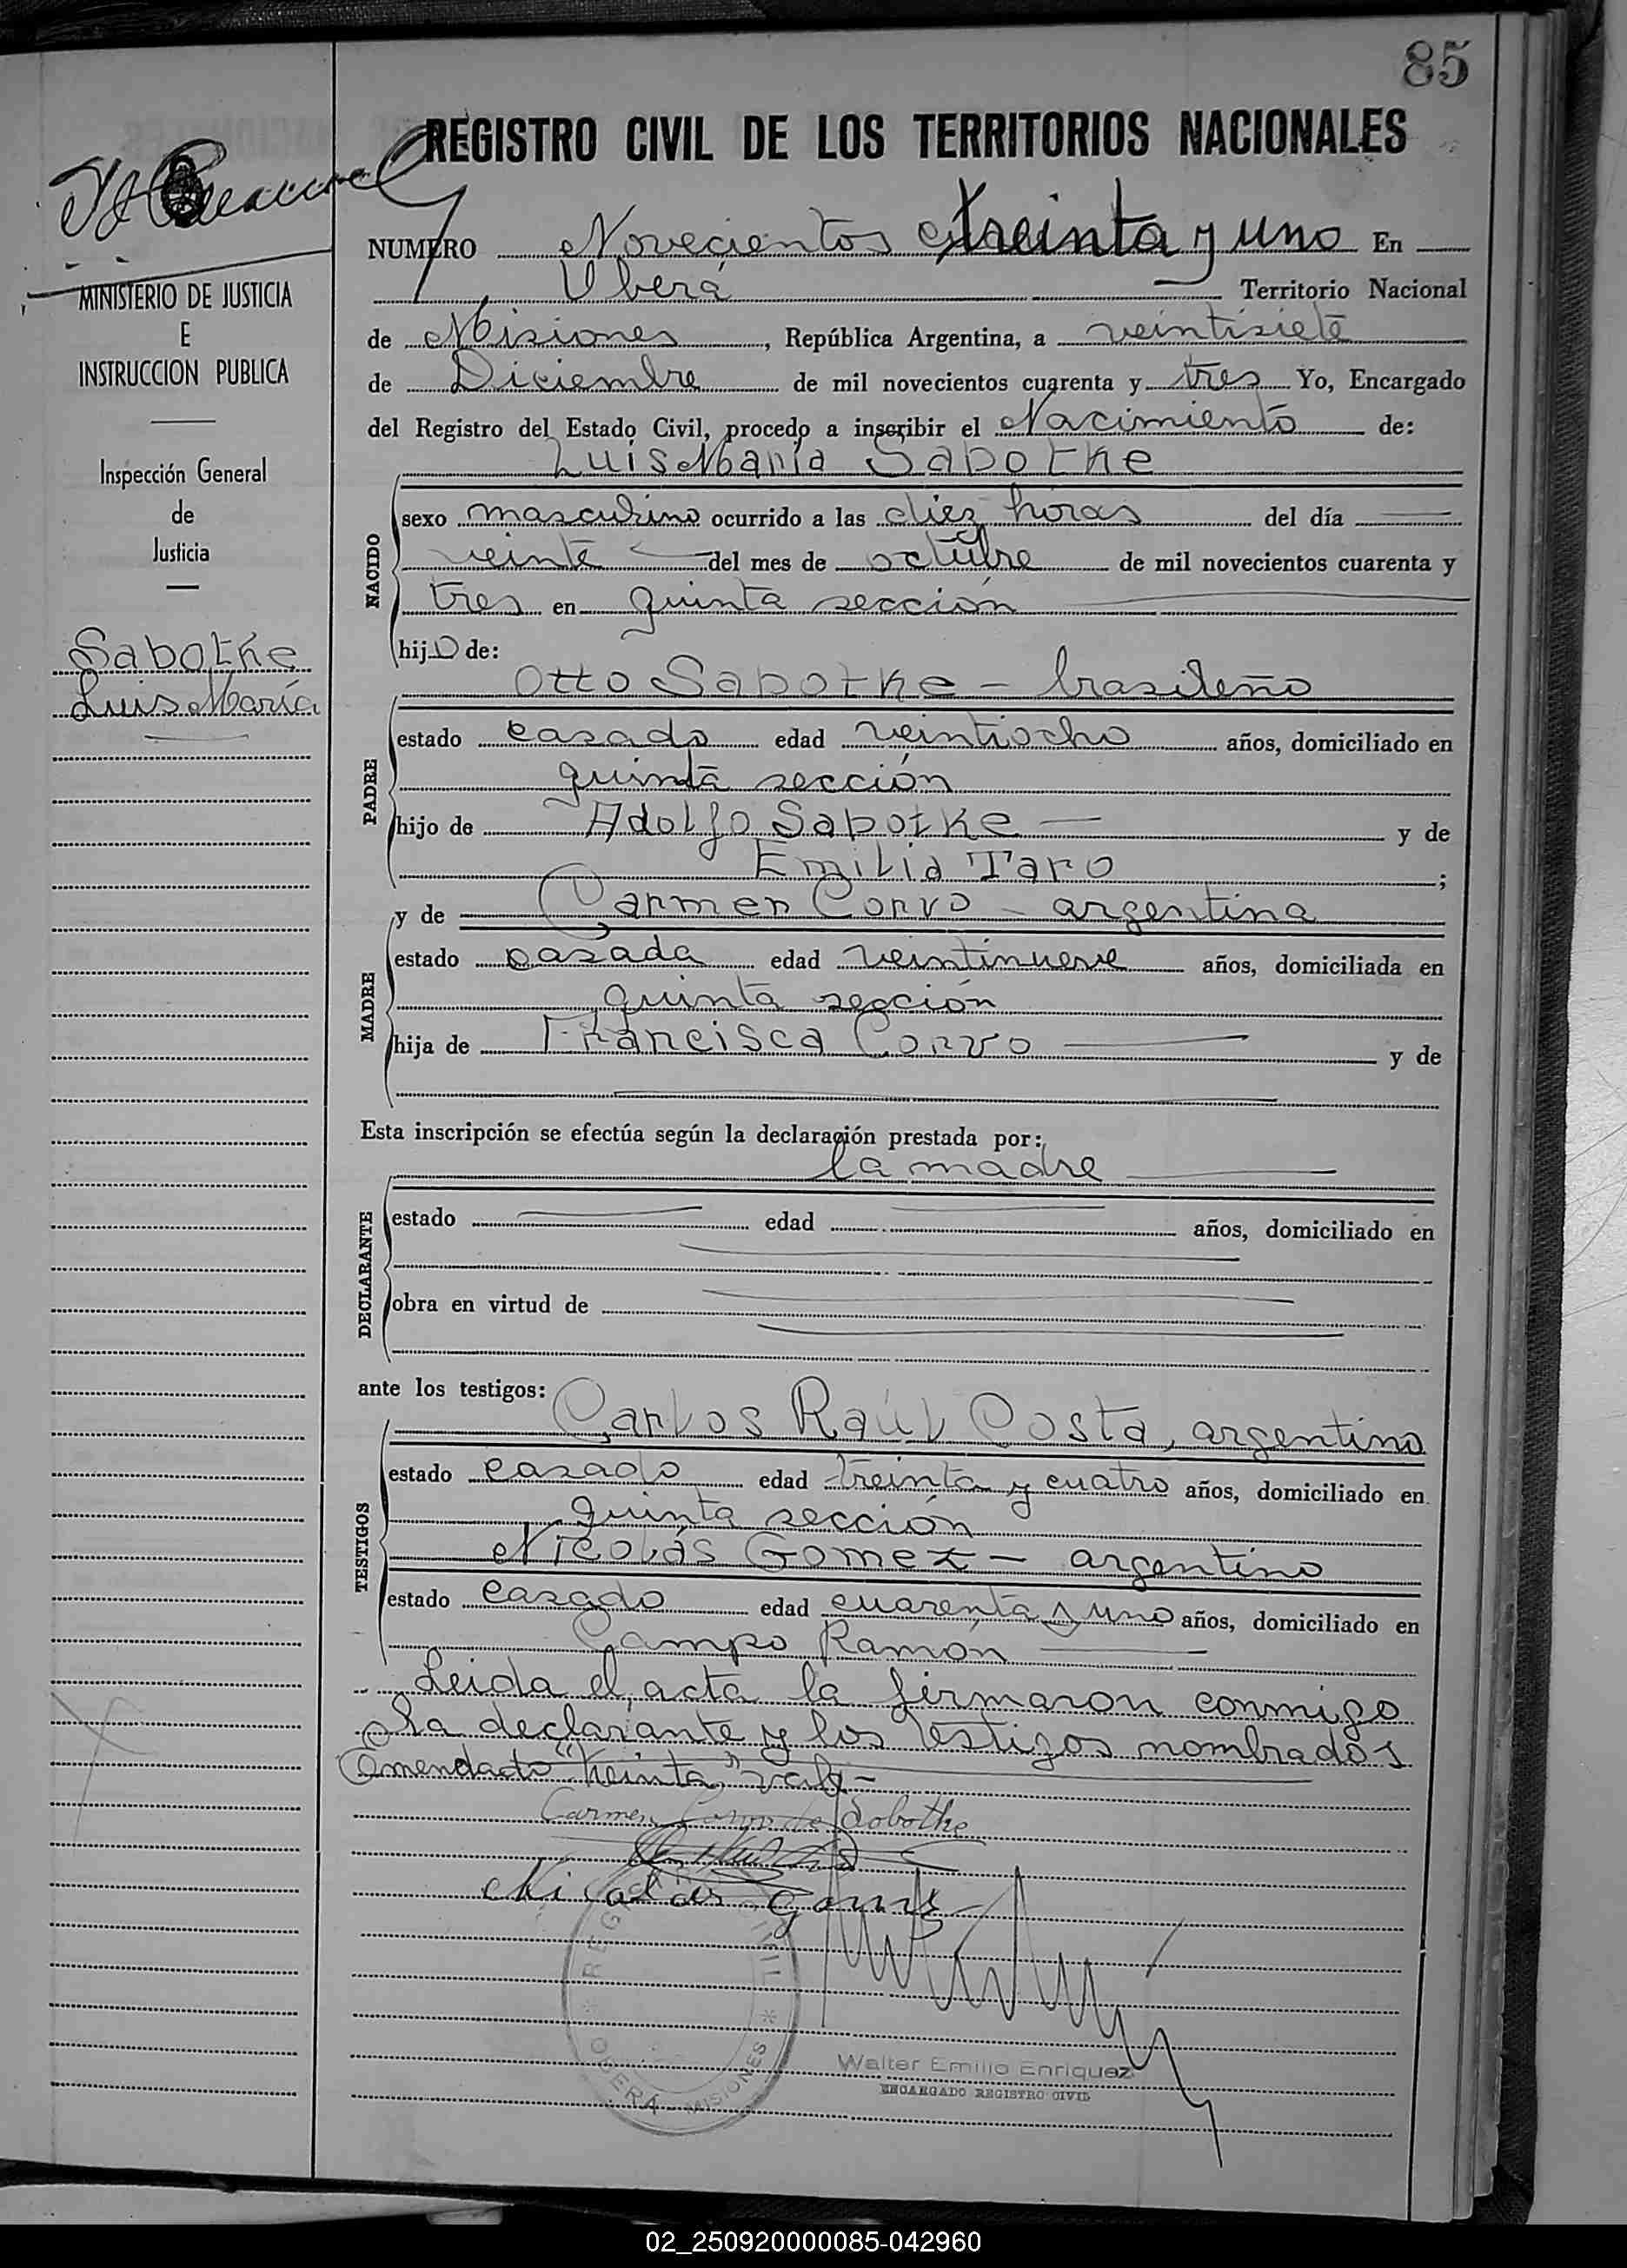 85
REGISTRO CIVIL DE LOS TERRITORIOS NACIONALES
NUMERO Novecientos treinta y uno En
Oberá Territorio Nacional
de Misiones, República Argentina, a veintisiete
de Diciembre de mil novecientos cuarenta y tres Yo, Encargado
del Registro del Estado Civil, procedo a inscribir el Nacimiento de:
Luis María Sabotke
NACIDO
sexo masculino ocurrido a las diez horas del día
veinte del mes de octubre de mil novecientos cuarenta y
tres en quinta sección
hijo de:
Otto Sabotke - brasileño
PADRE
estado casado edad veintiocho años, domiciliado en
quinta sección
hijo de Adolfo Sabotke y de
Emilia Taro;
y de Carmen Corvo - argentina
MADRE
estado casada edad veintinueve años, domiciliada en
quinta sección
hija de Francisca Corvo y de
Esta inscripción se efectúa según la declaración prestada por:
la madre
DECLARANTE
estado edad años, domiciliado en
obra en virtud de
ante los testigos:
Carlos Raúl Costa, argentino
TESTIGOS
estado casado edad treinta y cuatro años, domiciliado en
quinta sección
Nicolás Gomez - argentino
estado casado edad cuarenta y uno años, domiciliado en
Campo Ramón
Leida el acta la firmaron conmigo
la declarante y los testigos nombrados
Emendado "treinta," vale -
Carmen Corvo de Sobothe
Nicolas Gomez
REGISTRO CIVIL * OBERÁ - MISIONES *
Walter Emilio Enriquez
ENCARGADO REGISTRO CIVIL
MINISTERIO DE JUSTICIA
E
INSTRUCCION PUBLICA
Inspección General
de
Justicia
Sabotke
Luis María
02_250920000085-042960